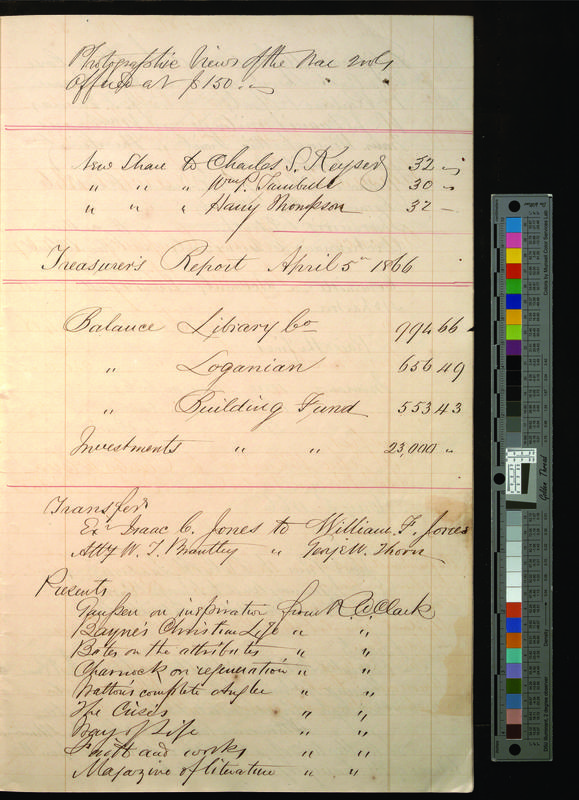 Photographic Views of the War 2 vols
Offered at $150.
New Share to Charles S. Keyser 32
" " " Wm P. Turnbull 30
" " " Harry Thompson 32
Treasurer's Report April 5th 1866
Balance Library Co 994 66
" Loganian 656 49
" Building Fund 553 43
Investments " " 23,000 "
Transfers
Exr Isaac C. Jones to William F. Jones
Atty W. T. Brantley " Benj. W. Thorn
Presents
on inspiration from R. W. Clark
Bayne's Christian Life " "
Bates on the attributes " "
Charnock on regeneration " "
Walton's complete Angler " "
The Crisis " "
Way of Life " "
Faith and works " "
Magazine of literature " "